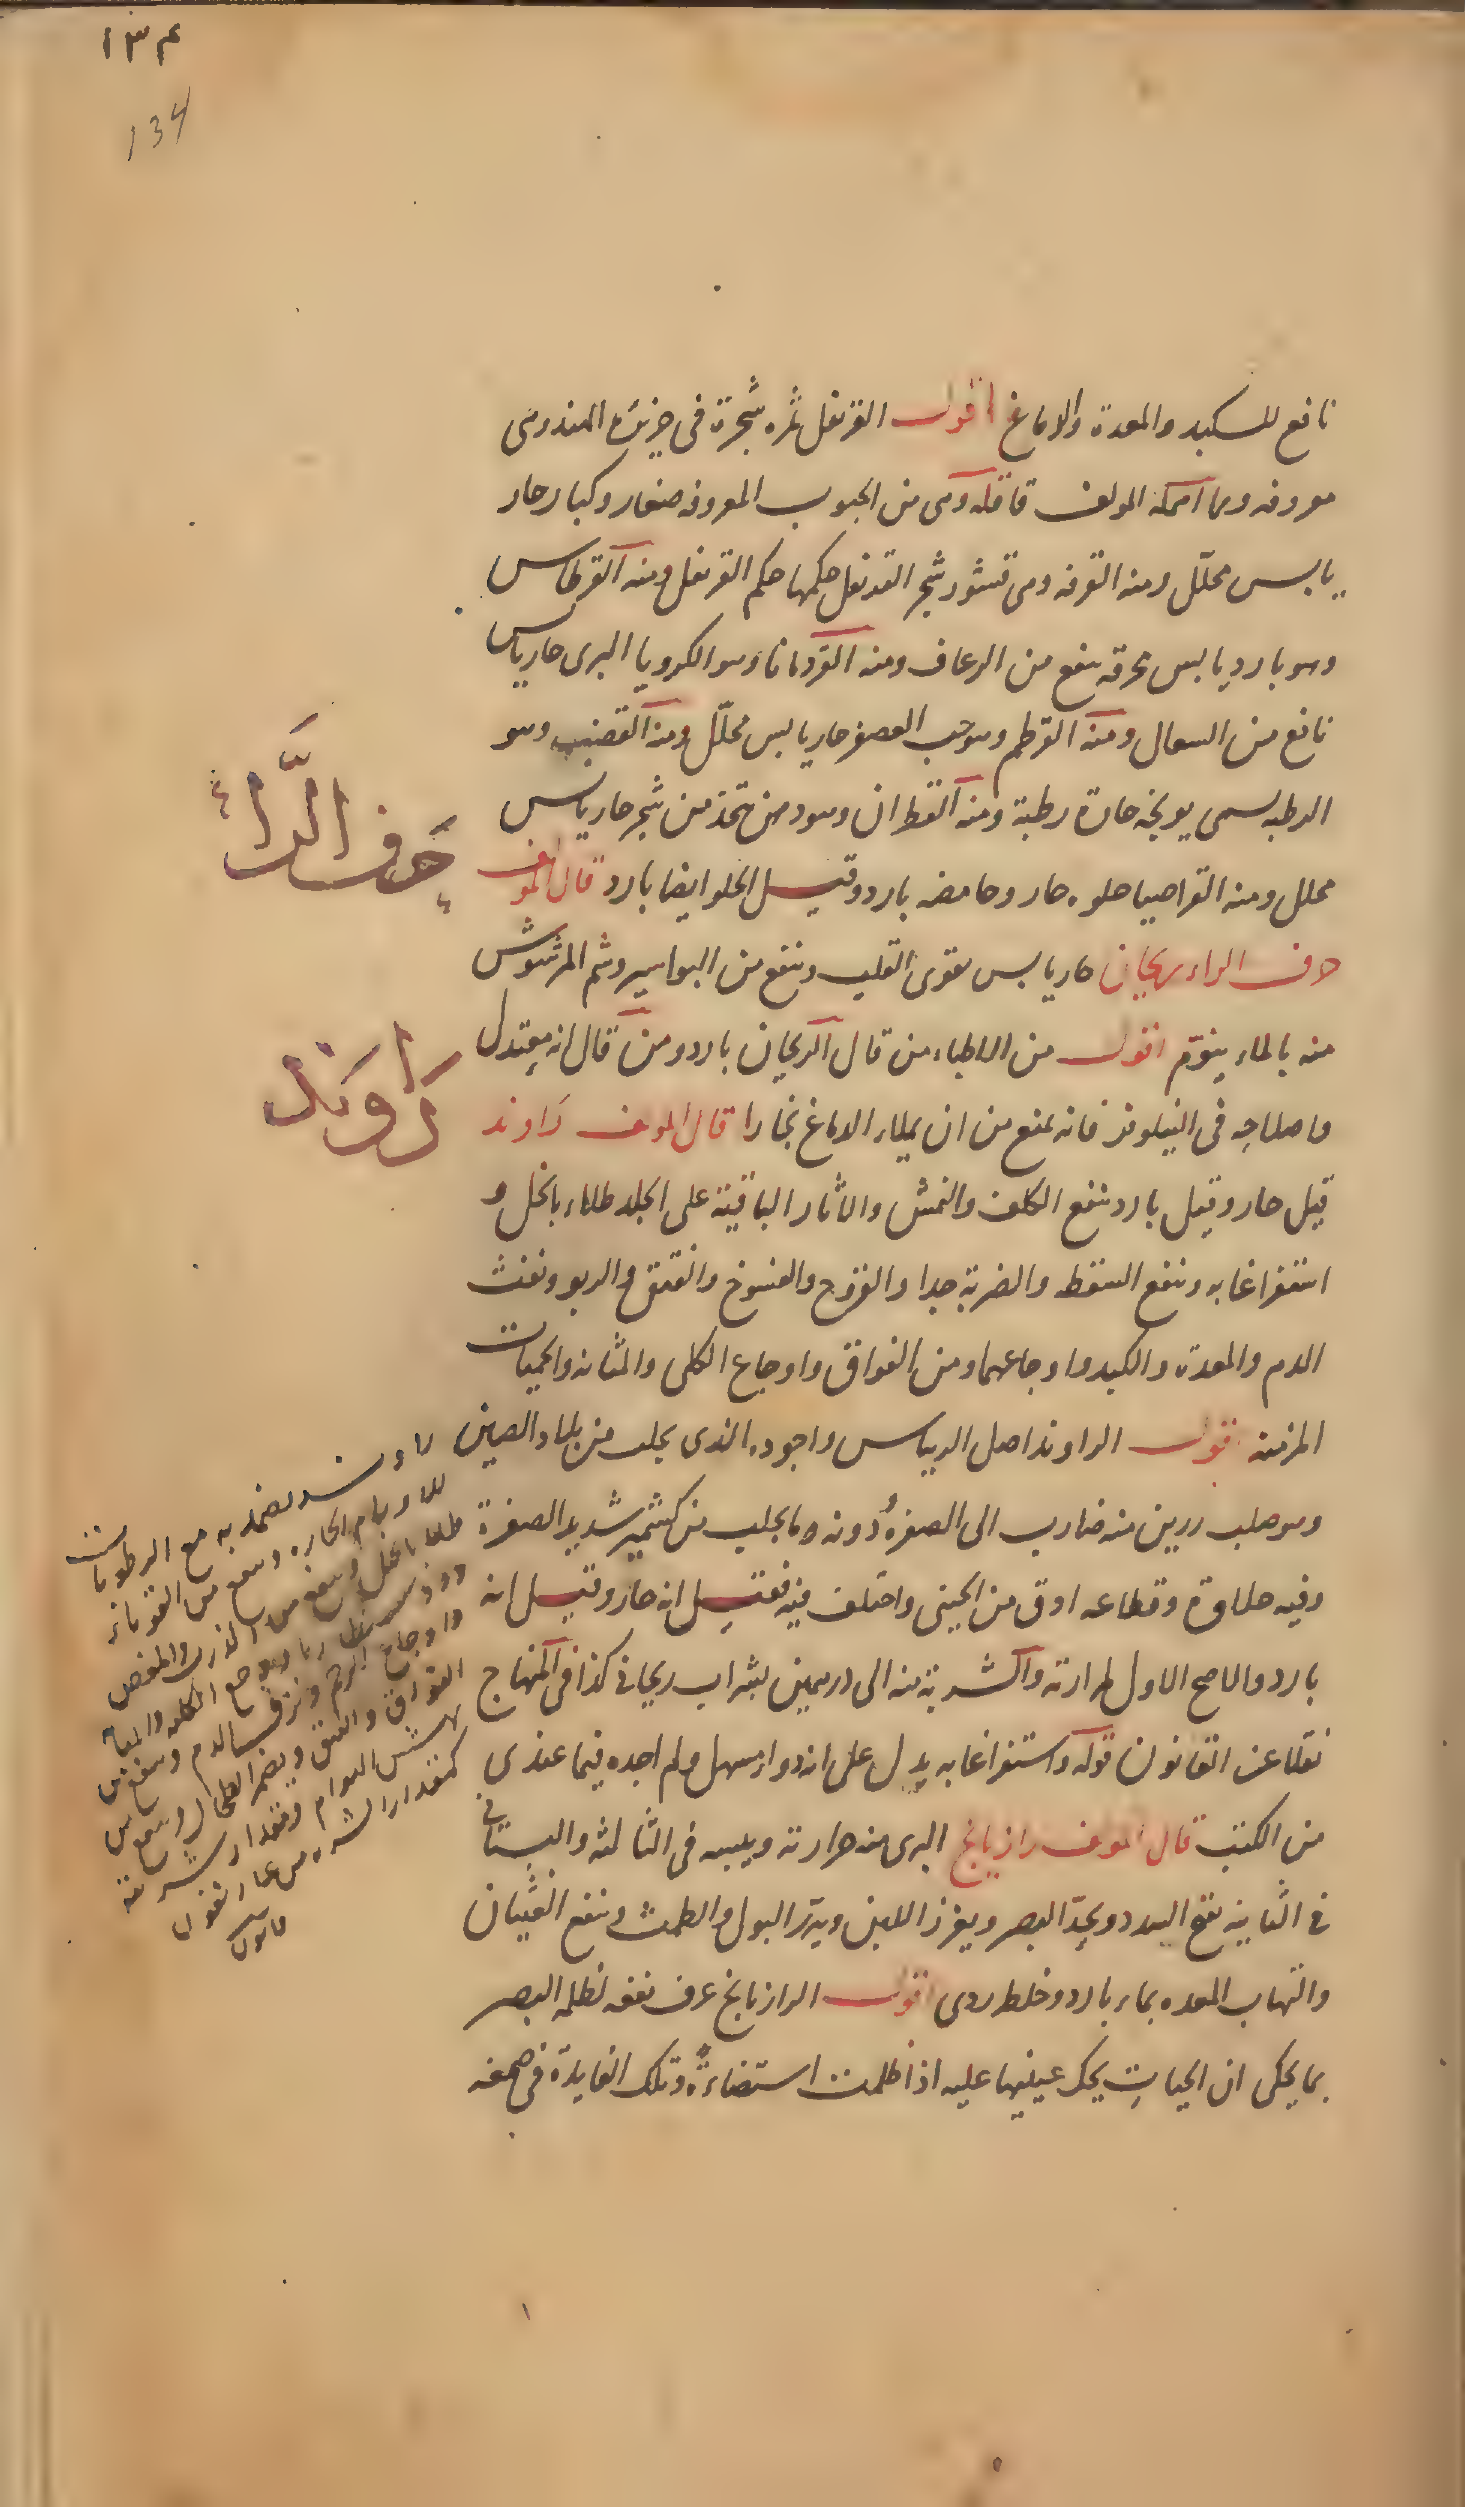 ١٣٤
134
نافع للكبد والمعدة والدماغ اقول القرنفل ثمره شجرة فى جزيرة الهند وهى
معروفه ومما اهمله المولف قاقله وهى من الحبوب المعروفه صغار وكبار حار
يابس محلّل ومنه القرفه وهى قشور شجر القرنفل حكمها حكم القرنفل ومنه القرطاس
وهو بارد يابس محرقه ينفع من الرعاف ومنه القردمانا وهو الكرويا البرى حار يابس
نافع من السعال ومنه القرطم وهو حب العصفر حار يابس محلّل ومنه القضب وهو
الرطبه يسمى يونجه حارة رطبة ومنه القطران وهو دهن يتخذ من شجر حار يابس
محلل ومنه القراصيا حلوه حار وحامضه بارد وقيل الحلو ايضا بارد قال المولف
حرف الراء ريحان حار يابس يقوى القلب وينفع من البواسير وشم المرشوش
منه بالماء ينوّم اقول من الاطباء من قال الريحان بارد ومن قال انه معتدل
واصلاحه فى النيلوفر فانه يمنع من ان يملاء الدماغ بخارا قال المولف راوند
قيل حار وقيل بارد ينفع الكلف والنمش والاثار الباقية على الجلد طلاء بالخل و
استفراغا به وينفع السقط والضربة جدا والقروح والفسوخ والفتق والربو ونفث
الدم والمعدة والكبد واوجاعهما ومن الفواق واوجاع الكلى والمثانه والحميات
المزمنه اقول الراوند اصل الريباس واجوده الذى يجلب من بلاد الصين
وهو صلب رزين منه ضارب الى الصفرة ودونه ما يجلب من كشمير شديد الصفرة
وفيه حلاوة وقطاعه ادق من الجينى واختلف فيه فقيل انه حار وقيل انه
بارد والاصح الاول لمرارته والشربة منه الى درهمين بشراب ريحانى كذا فى المنهاج
نقلا عن القانون قوله واستفراغا به يدل على انه دواء مسهل ولم اجده فيما عندى
من الكتب قال المولف رازيانج البرى منه حرارته ويبسه فى الثالثه والبستانى
فى الثانيه يفتح السدد ويحدّ البصر ويغزز اللبن ويدرّ البول والطمث وينفع الغثيان
والتهاب المعده بماء بارد وخلط ردى اقول الرازيانج عرف نفعه لظلمه البصر
بما يحكى ان الحيات يحك عينيها عليه اذا ظلمت استضاءة وتلك الفايدة فى صمغه
حرف الرَّاء
رَاوَند
راوند يضمد به مع الرطوبات
للاورام الحاره وينفع من القوباء
طلاء بالخل وينفع من الذرب والمغص
ووجع الكلى والمثانة
واوجاع الرحم ونزف الدم وينفع من
الفواق والفتق ويضمر الطحال وينفع من
نهش الهوام ومقدار شربته
كمقدار الشربه من غاريقون
قانون